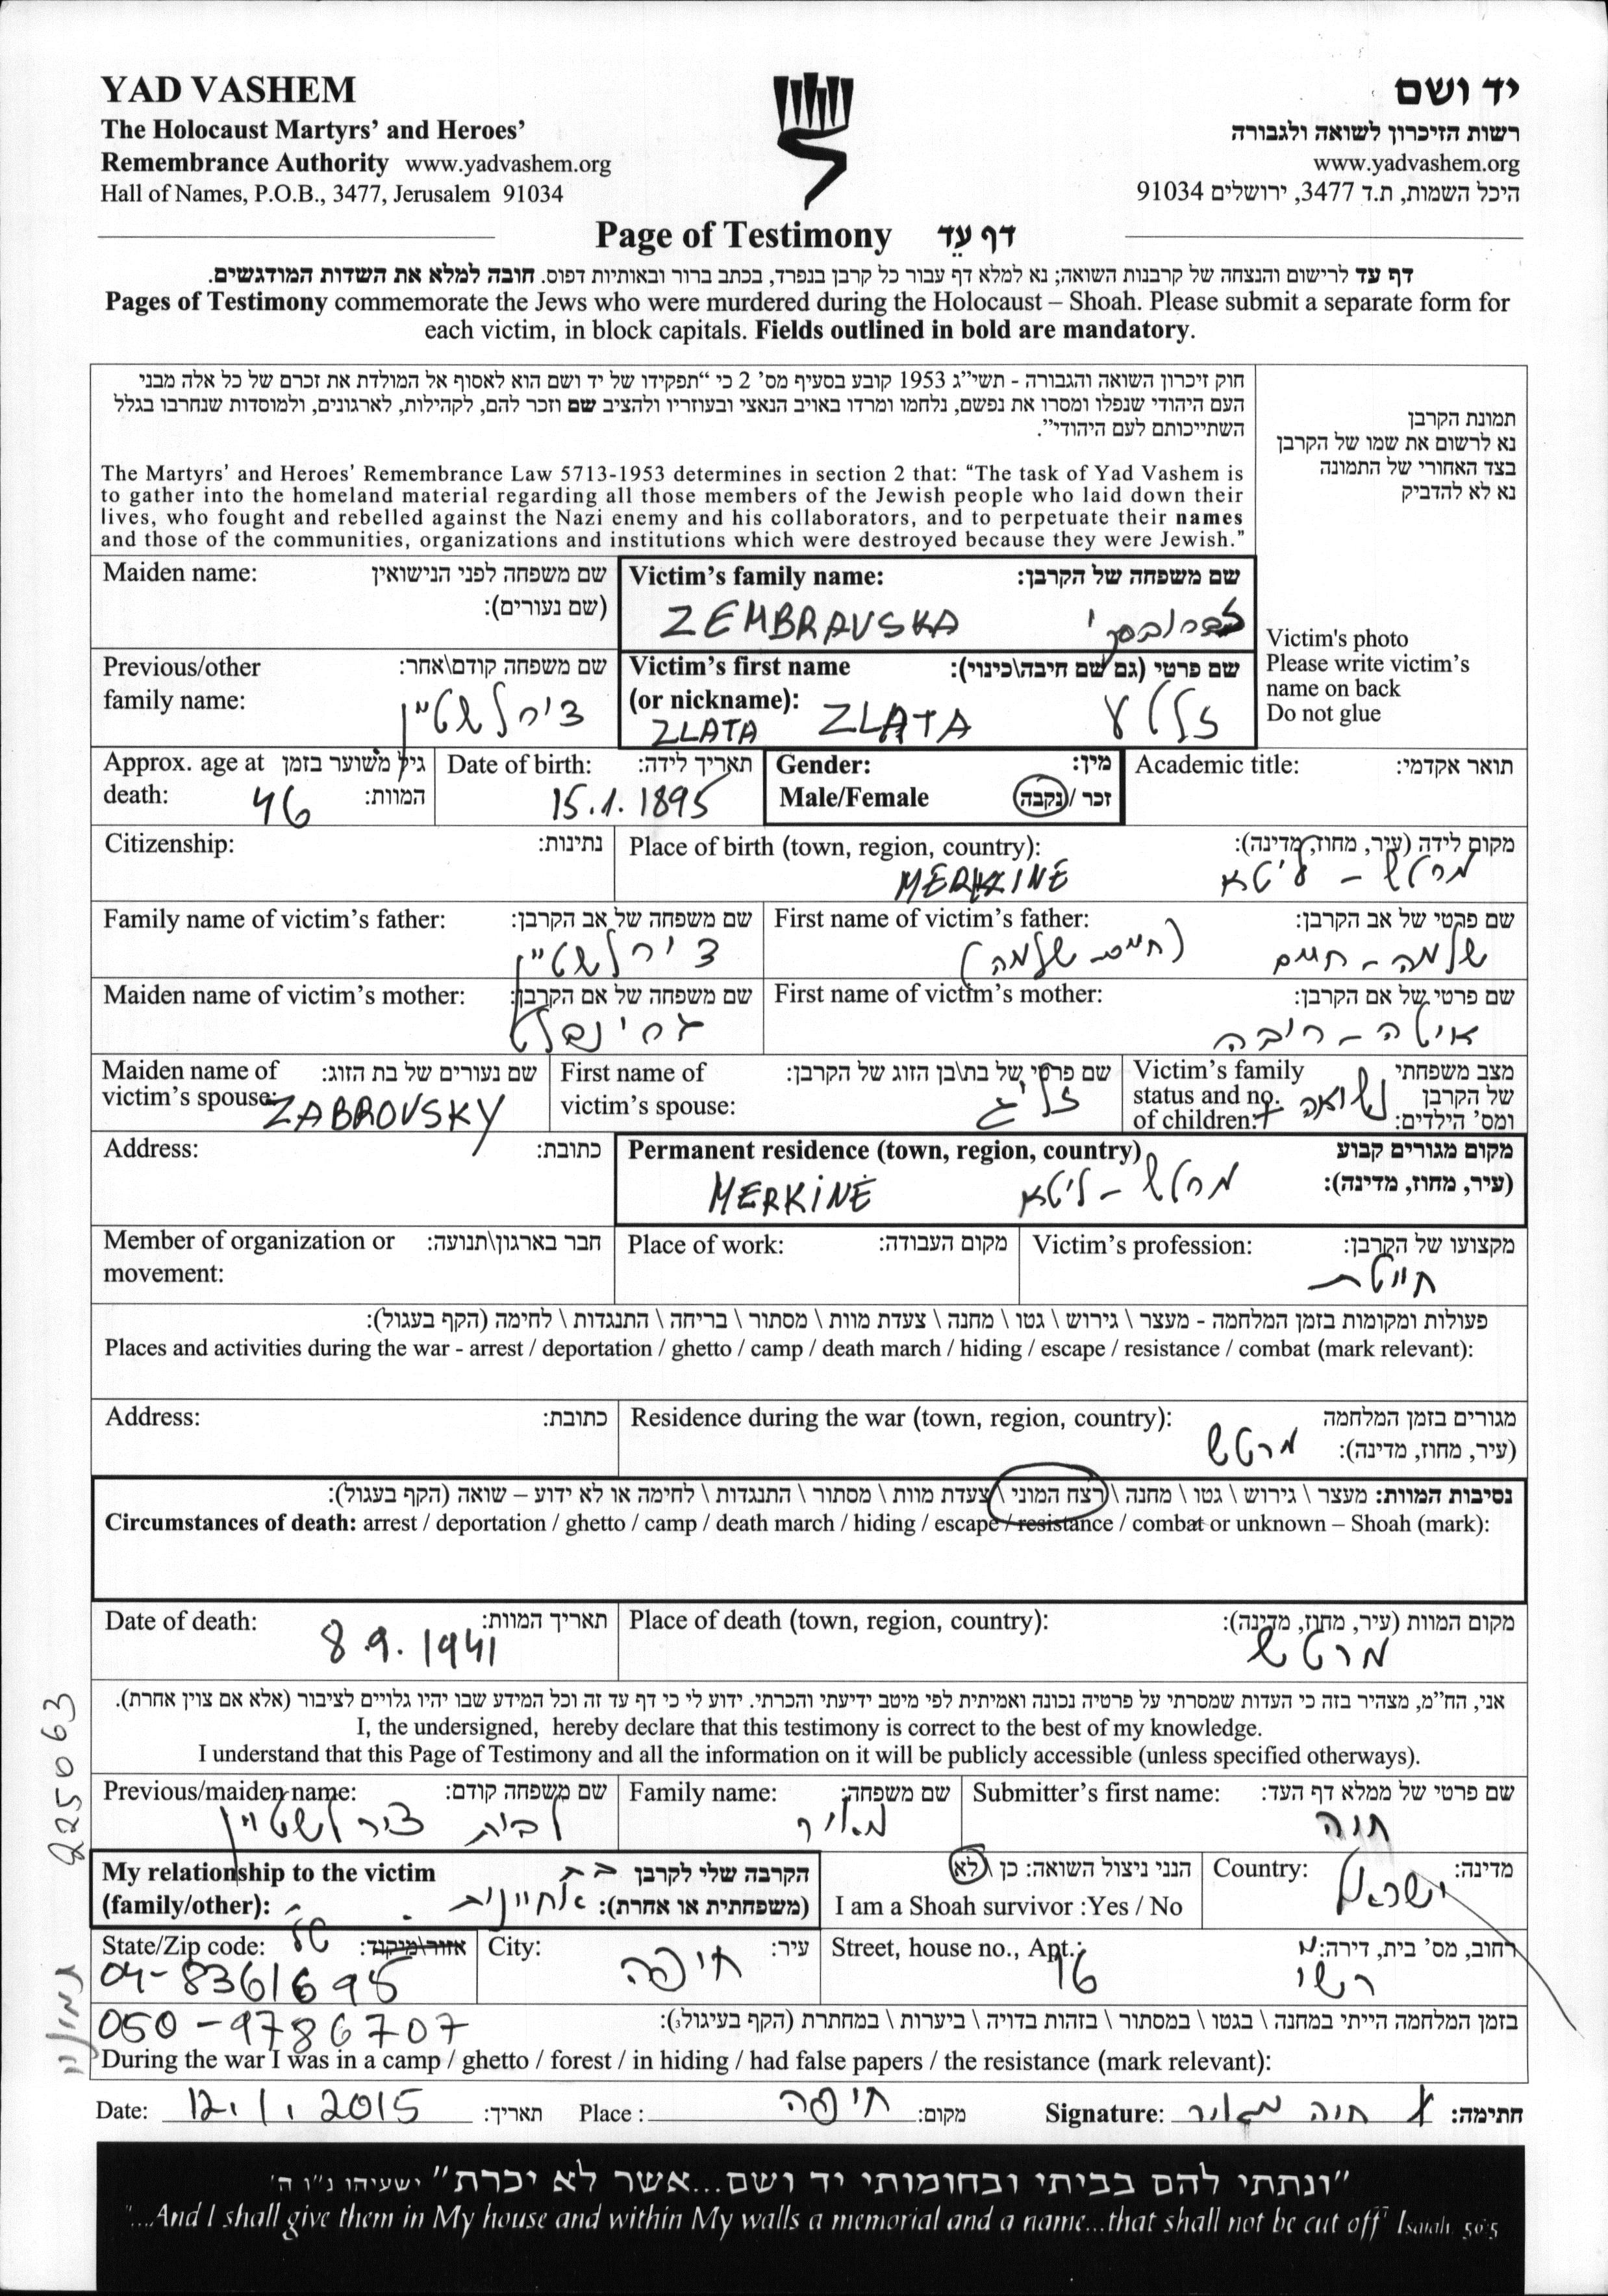 YAD VASHEM
The Holocaust Martyrs' and Heroes'
Remembrance Authority www.yadvashem.org
Hall of Names, P.O.B., 3477, Jerusalem 91034
יד ושם
רשות הזיכרון לשואה ולגבורה
www.yadvashem.org
היכל השמות, ת.ד 3477, ירושלים 91034
Page of Testimony דף עֵד
דף עד לרישום והנצחה של קרבנות השואה; נא למלא דף עבור כל קרבן בנפרד, בכתב ברור ובאותיות דפוס. חובה למלא את השדות המודגשים.
Pages of Testimony commemorate the Jews who were murdered during the Holocaust – Shoah. Please submit a separate form for
each victim, in block capitals. Fields outlined in bold are mandatory.
חוק זיכרון השואה והגבורה - תשי"ג 1953 קובע בסעיף מס' 2 כי "תפקידו של יד ושם הוא לאסוף אל המולדת את זכרם של כל אלה מבני
העם היהודי שנפלו ומסרו את נפשם, נלחמו ומרדו באויב הנאצי ובעוזריו ולהציב שם וזכר להם, לקהילות, לארגונים, ולמוסדות שנחרבו בגלל
השתייכותם לעם היהודי".
The Martyrs' and Heroes' Remembrance Law 5713-1953 determines in section 2 that: "The task of Yad Vashem is
to gather into the homeland material regarding all those members of the Jewish people who laid down their
lives, who fought and rebelled against the Nazi enemy and his collaborators, and to perpetuate their names
and those of the communities, organizations and institutions which were destroyed because they were Jewish."
תמונת הקרבן
נא לרשום את שמו של הקרבן
בצד האחורי של התמונה
נא לא להדביק
Victim's photo
Please write victim's
name on back
Do not glue
Maiden name: שם משפחה לפני הנישואין
(שם נעורים):
Victim's family name: שם משפחה של הקרבן:
ZEMBRAVSKA
Previous/other שם משפחה קודם\אחר:
family name: צירלשטיין
Victim's first name שם פרטי (גם שם חיבה\כינוי):
(or nickname):
ZLATA ZLATA זלטע
Approx. age at גיל משוער בזמן
death: 46 המוות:
Date of birth: תאריך לידה:
15.1.1895
Gender: מין:
Male/Female זכר / נקבה
Academic title: תואר אקדמי:
Citizenship: נתינות:
Place of birth (town, region, country): מקום לידה (עיר, מחוז, מדינה):
MERKINE מרטש - ליטא
Family name of victim's father: שם משפחה של אב הקרבן:
צירלשטיין
First name of victim's father: שם פרטי של אב הקרבן:
שלמה - חיים (חיים שלמה)
Maiden name of victim's mother: שם משפחה של אם הקרבן:
גרינבלט
First name of victim's mother: שם פרטי של אם הקרבן:
איטה - ריבה
Maiden name of שם נעורים של בת הזוג:
victim's spouse: ZABROVSKY
First name of שם פרטי של בת\בן הזוג של הקרבן:
victim's spouse: זליג
Victim's family מצב משפחתי
status and no. נשואה של הקרבן
of children: 7 ומס' הילדים:
Address: כתובת:
Permanent residence (town, region, country) מקום מגורים קבוע
(עיר, מחוז, מדינה):
MERKINĖ מרטש - ליטא
Member of organization or חבר בארגון\תנועה:
movement:
Place of work: מקום העבודה:
Victim's profession: מקצועו של הקרבן:
חייטת
פעולות ומקומות בזמן המלחמה - מעצר \ גירוש \ גטו \ מחנה \ צעדת מוות \ מסתור \ בריחה \ התנגדות \ לחימה (הקף בעגול):
Places and activities during the war - arrest / deportation / ghetto / camp / death march / hiding / escape / resistance / combat (mark relevant):
Address: כתובת:
Residence during the war (town, region, country): מגורים בזמן המלחמה
(עיר, מחוז, מדינה): מרטש
נסיבות המוות: מעצר \ גירוש \ גטו \ מחנה \ רצח המוני \ צעדת מוות \ מסתור \ התנגדות \ לחימה או לא ידוע – שואה (הקף בעגול):
Circumstances of death: arrest / deportation / ghetto / camp / death march / hiding / escape / resistance / combat or unknown – Shoah (mark):
Date of death: תאריך המוות:
8.9.1941
Place of death (town, region, country): מקום המוות (עיר, מחוז, מדינה):
מרטש
אני, הח"מ, מצהיר בזה כי העדות שמסרתי על פרטיה נכונה ואמיתית לפי מיטב ידיעתי והכרתי. ידוע לי כי דף עד זה וכל המידע שבו יהיו גלויים לציבור (אלא אם צוין אחרת).
I, the undersigned, hereby declare that this testimony is correct to the best of my knowledge.
I understand that this Page of Testimony and all the information on it will be publicly accessible (unless specified otherways).
Previous/maiden name: שם משפחה קודם:
לבית צירלשטיין
Family name: שם משפחה:
מאיר
Submitter's first name: שם פרטי של ממלא דף העד:
חוה
My relationship to the victim הקרבה שלי לקרבן בת
(family/other): (משפחתית או אחרת): אחיינית
הנני ניצול השואה: כן \ לא
I am a Shoah survivor :Yes / No
Country: מדינה:
ישראל
State/Zip code: טל אזור\מיקוד:
04-8361695
City: עיר:
חיפה
Street, house no., Apt.: רחוב, מס' בית, דירה:
רשי 16
050-9786707
בזמן המלחמה הייתי במחנה \ בגטו \ במסתור \ בזהות בדויה \ ביערות \ במחתרת (הקף בעיגול):
During the war I was in a camp / ghetto / forest / in hiding / had false papers / the resistance (mark relevant):
Date: 12.1.2015 תאריך:
Place : חיפה מקום:
Signature: חוה מאיר חתימה:
225063
"ונתתי להם בביתי ובחומותי יד ושם...אשר לא יכרת" ישעיהו נ"ו ה'
"...And I shall give them in My house and within My walls a memorial and a name...that shall not be cut off" Isaiah 56:5